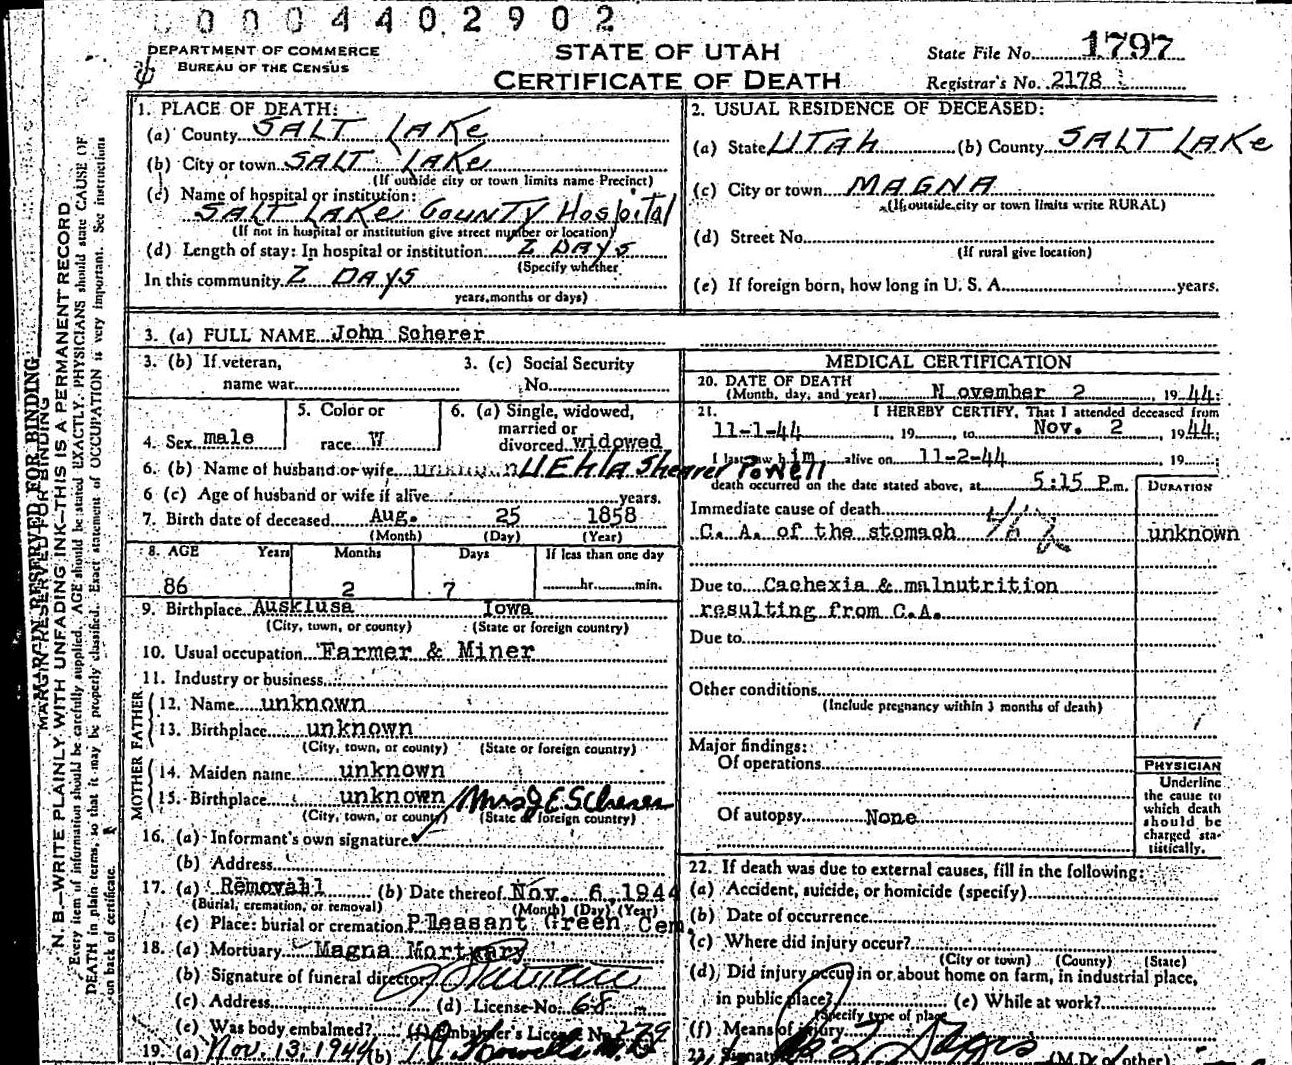 0004402902
DEPARTMENT OF COMMERCE
BUREAU OF THE CENSUS
STATE OF UTAH
CERTIFICATE OF DEATH
State File No. 1797
Registrar's No. 2178
MARGIN RESERVED FOR BINDING
N. B.—WRITE PLAINLY WITH UNFADING INK—THIS IS A PERMANENT RECORD
Every item of information should be carefully supplied. AGE should be stated EXACTLY. PHYSICIANS should state CAUSE OF
DEATH in plain terms, so that it may be properly classified. Exact statement of OCCUPATION is very important. See instructions
on back of certificate.
1. PLACE OF DEATH:
(a) County SALT LAKE
(b) City or town SALT LAKE
(If outside city or town limits name Precinct)
(c) Name of hospital or institution:
SALT LAKE COUNTY HOSPITAL
(If not in hospital or institution give street number or location)
(d) Length of stay: In hospital or institution 2 DAYS
(Specify whether
In this community 2 DAYS
years, months or days)
2. USUAL RESIDENCE OF DECEASED:
(a) State UTAH (b) County SALT LAKE
(c) City or town MAGNA
(If outside city or town limits write RURAL)
(d) Street No.
(If rural give location)
(e) If foreign born, how long in U. S. A. years.
3. (a) FULL NAME John Scherer
3. (b) If veteran,
name war
3. (c) Social Security
No.
4. Sex male
5. Color or
race W
6. (a) Single, widowed,
married or
divorced widowed
6. (b) Name of husband or wife unknown UEhlA Shearer Powell
6 (c) Age of husband or wife if alive years.
7. Birth date of deceased Aug. 25 1858
(Month) (Day) (Year)
8. AGE Years Months Days If less than one day
86 2 7 hr. min.
9. Birthplace Ausklusa Iowa
(City, town, or county) (State or foreign country)
10. Usual occupation Farmer & Miner
11. Industry or business
FATHER
12. Name unknown
13. Birthplace unknown
(City, town, or county) (State or foreign country)
MOTHER
14. Maiden name unknown
15. Birthplace unknown
(City, town, or county) (State or foreign country)
16. (a) Informant's own signature Mrs J E Scherer
(b) Address
17. (a) Removal (b) Date thereof Nov. 6, 1944
(Burial, cremation, or removal) (Month) (Day) (Year)
(c) Place: burial or cremation Pleasant Green Cem.
18. (a) Mortuary Magna Mortuary
(b) Signature of funeral director
(c) Address (d) License No. 68
(e) Was body embalmed? (f) Embalmer's License No. 279
19. (a) Nov. 13, 1944 (b)
MEDICAL CERTIFICATION
20. DATE OF DEATH
(Month, day, and year) November 2, 1944;
21. I HEREBY CERTIFY, That I attended deceased from
11-1-44, 19, to Nov. 2, 1944;
I last saw him alive on 11-2-44, 19
death occurred on the date stated above, at 5:15 P.m.
DURATION
Immediate cause of death
C. A. of the stomach unknown
Due to Cachexia & malnutrition
resulting from C.A.
Due to
Other conditions
(Include pregnancy within 3 months of death)
Major findings:
Of operations
Of autopsy None
PHYSICIAN
Underline
the cause to
which death
should be
charged sta-
tistically.
22. If death was due to external causes, fill in the following:
(a) Accident, suicide, or homicide (specify)
(b) Date of occurrence
(c) Where did injury occur?
(City or town) (County) (State)
(d) Did injury occur in or about home on farm, in industrial place,
in public place? (e) While at work?
(Specify type of place
(f) Means of injury
23. Signature (M.D. or other)